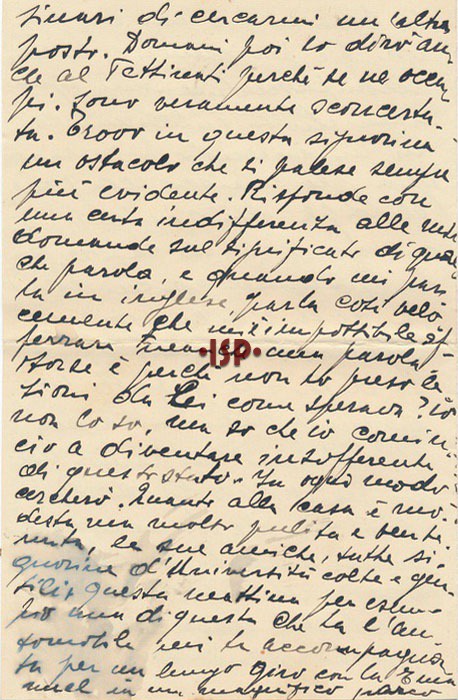 sinari di cercarmi un'altro
posto. Domani poi lo dirò an-
che al Tettinenti perché se ne occu-
pi. Sono veramente sconcerta-
ta. Trovo in questa signorina
un ostacolo che si palesa sempre
più evidente. Risponde con
una certa indifferenza alle mie
domande sul significato di qual-
che parola, e quando mi par-
la in inglese, parla così velo-
cemente che mi è impossibile af-
ferrare neanche una parola.
Forse è perché non ho preso le-
zioni da Lei come sperava? Io
non lo so, ma so che io comin-
cio a diventare insofferente
di questo stato. In ogni modo
cercherò. Quanto alla casa è mo-
desta ma molto pulita e bene
, le sue amiche, tutte si-
gnorine d'Università colte e gen-
tili; questa mattina per esem-
pio una di queste che ha l'au-
tomobile mi ha accompagna-
ta per un lungo giro con la
in un magnifico
·ISP·